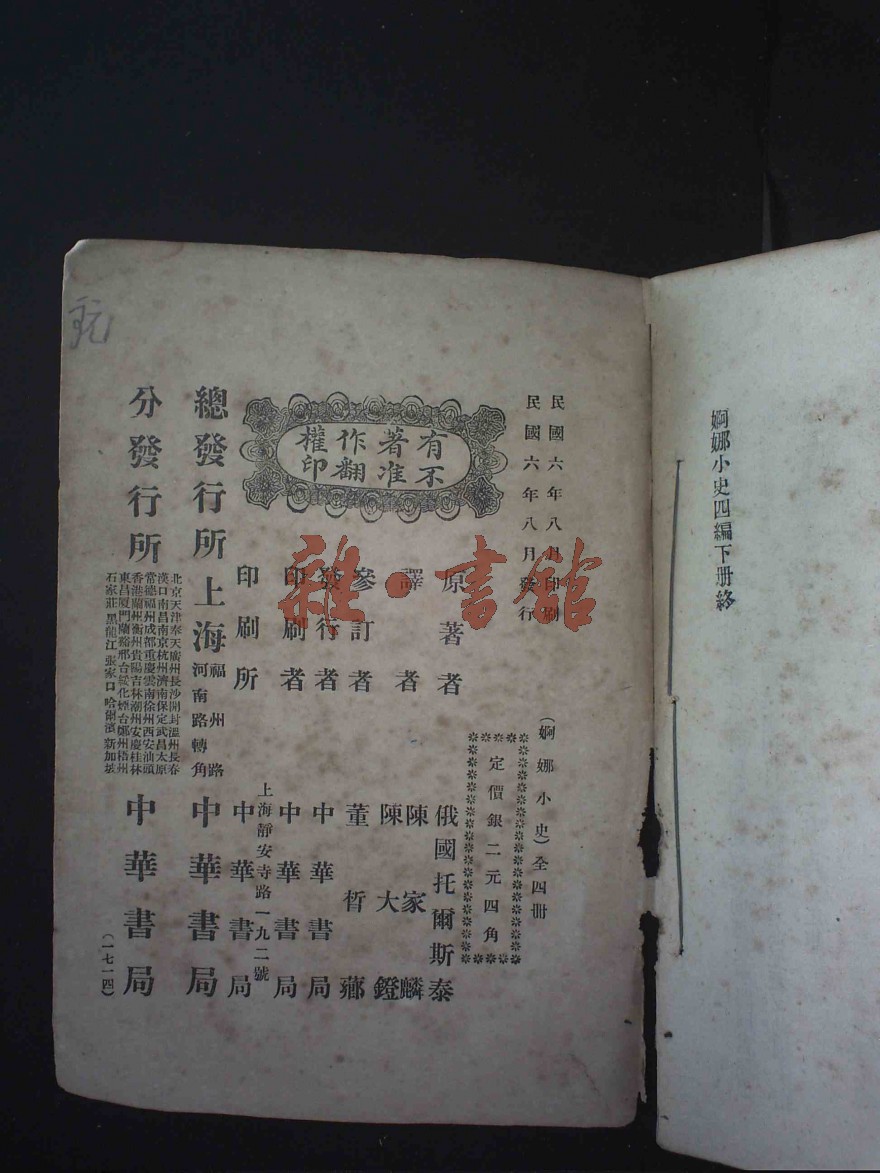 婀娜小史四編下册終
民國六年八月印刷
民國六年八月發行
(婀娜小史)全四冊
定價銀二元四角
有不
著准
作翻
權印
原著者 俄國托爾斯泰
譯者 陳家麟
陳大鐙
參訂者 董晳薌
發行者 中華書局
印刷者 中華書局
印刷所 上海靜安寺路一九二號 中華書局
總發行所 上海 福州路河南路轉角 中華書局
分發行所
北京天津奉天廣州長沙開封溫州長春
漢口南昌南京杭州濟南保定武昌太原
常德福州成都重慶雲南徐州西安汕頭
香港蘭州衡州貴陽吉林潮州安慶桂林
東昌厦門蘭谿邢台綏化煙台鄭州梧州
石家莊黑龍江張家口哈爾濱新加坡
中華書局
(一七一四)
雜·書館